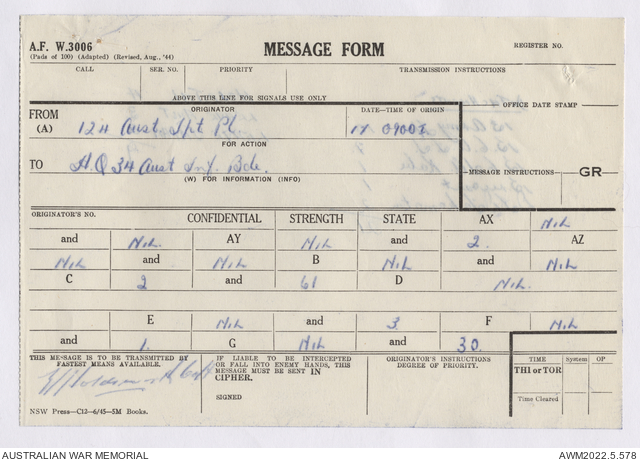 A.F. W.3006
(Pads of 100) (Adapted) (Revised, Aug., '44)
MESSAGE FORM
REGISTER NO.
CALL SER. NO. PRIORITY TRANSMISSION INSTRUCTIONS
ABOVE THIS LINE FOR SIGNALS USE ONLY
FROM ORIGINATOR DATE–TIME OF ORIGIN OFFICE DATE STAMP
(A) 124 Aust Spt Pl 17 0900Z
FOR ACTION
TO H.Q 34 Aust Inf. Bde.
(W) FOR INFORMATION (INFO)
MESSAGE INSTRUCTIONS GR
ORIGINATOR'S NO. CONFIDENTIAL STRENGTH STATE AX NiL
and NiL AY NiL and 2. AZ
NiL and NiL B NiL and NiL
C 2 and 61 D NiL
E NiL and 3. F NiL
and 1. G NiL and 30.
THIS MESSAGE IS TO BE TRANSMITTED BY FASTEST MEANS AVAILABLE.
IF LIABLE TO BE INTERCEPTED OR FALL INTO ENEMY HANDS, THIS MESSAGE MUST BE SENT IN CIPHER.
SIGNED
ORIGINATOR'S INSTRUCTIONS DEGREE OF PRIORITY.
TIME System OP
THI or TOR
Time Cleared
NSW Press—C12—6/45—5M Books.
AUSTRALIAN WAR MEMORIAL AWM2022.5.578